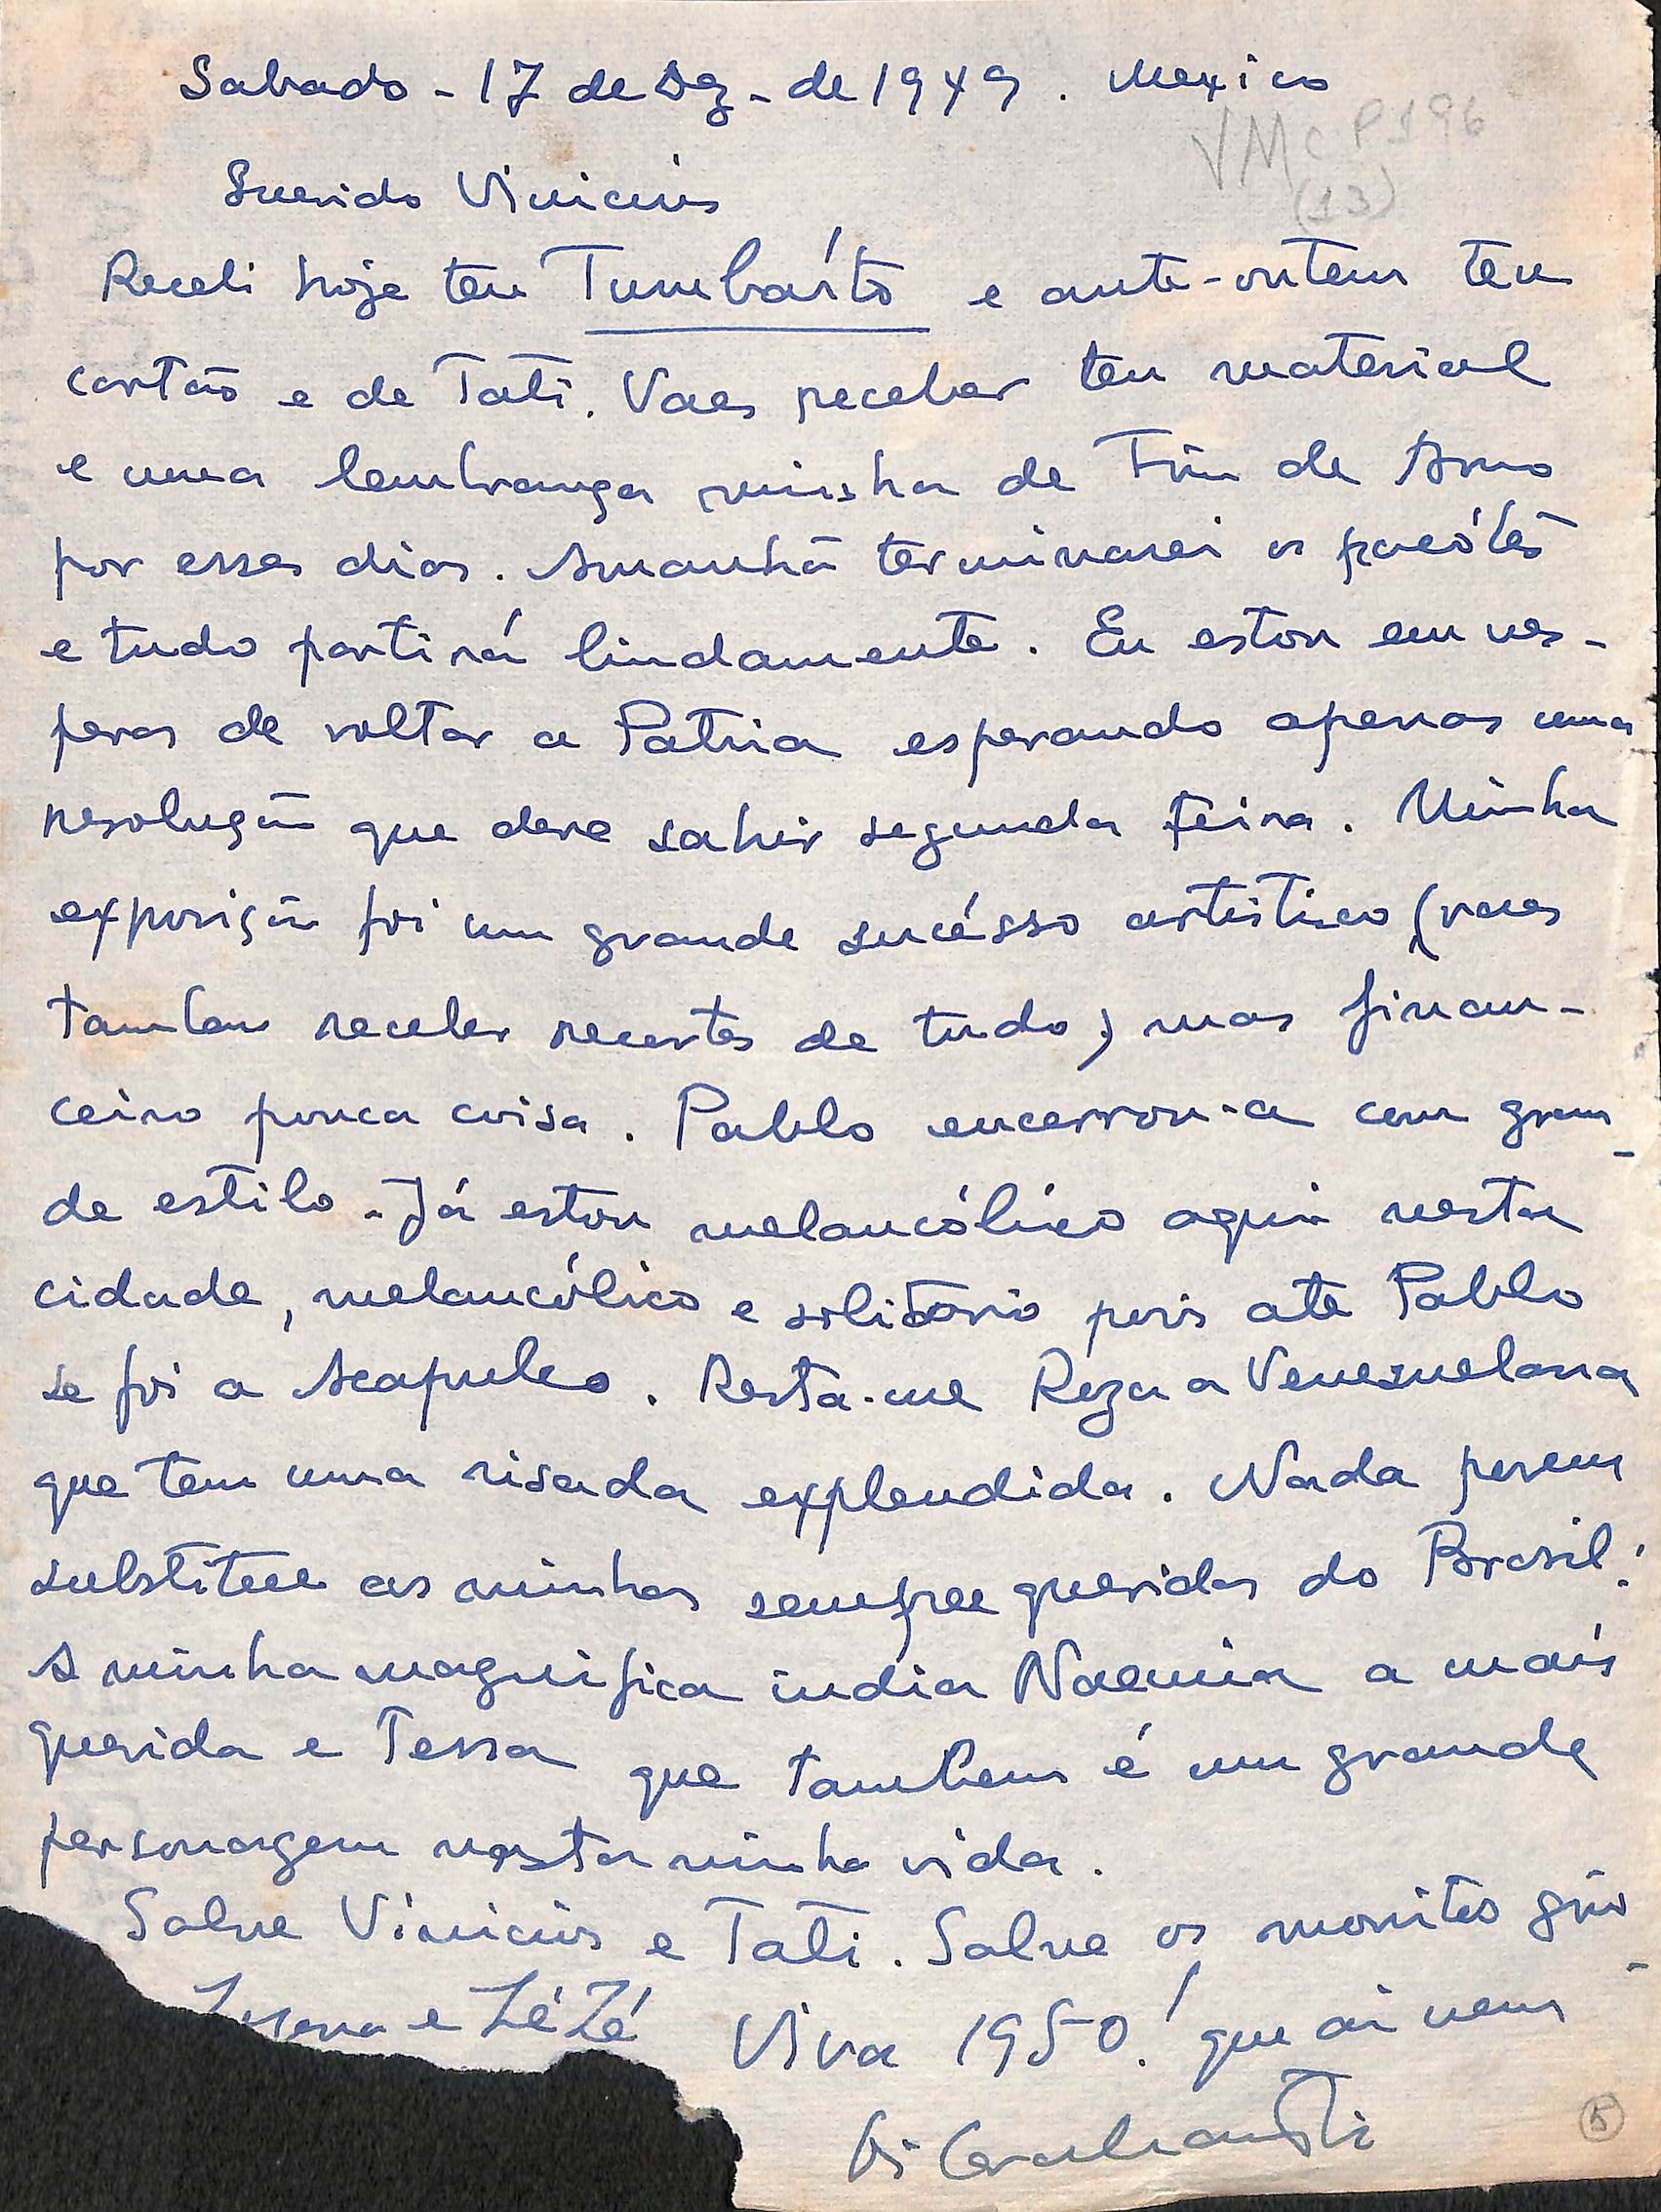 Sabado - 17 de Dez - de 1949. Mexico
VMcP196
(13)
Querido Vinicius
Recebi hoje teu Tumbaíto e ante-ontem teu
cartão e de Tati. Vaes receber teu material
e uma lembrança minha de Fim de Anno
por esses dias. Amanhã terminarei os pacótes
e tudo partirá lindamente. Eu estou em ves-
peras de voltar a Patria esperando apenas uma
resolução que deve sahir segunda feira. Minha
exposição foi um grande sucésso artistico (vaes
tambem receber recortes de tudo) mas finan-
ceiro pouca coisa. Pablo encerrou-a com gran-
de estilo. Já estou melancólico aqui nesta
cidade, melancólico e solitario pois até Pablo
se foi a Acapulco. Resta-me Roza a Venezuelana
que tem uma risada explendida. Nada porem
substitue as minhas sempre queridas do Brasil:
A minha magnifica india Noemia a mais
querida e Tessa que tambem é um grande
personagem nesta minha vida.
Salve Vinicius e Tati. Salve os monitos
e ZéZé Viva 1950! que ai vem
Di Cavalcanti
5